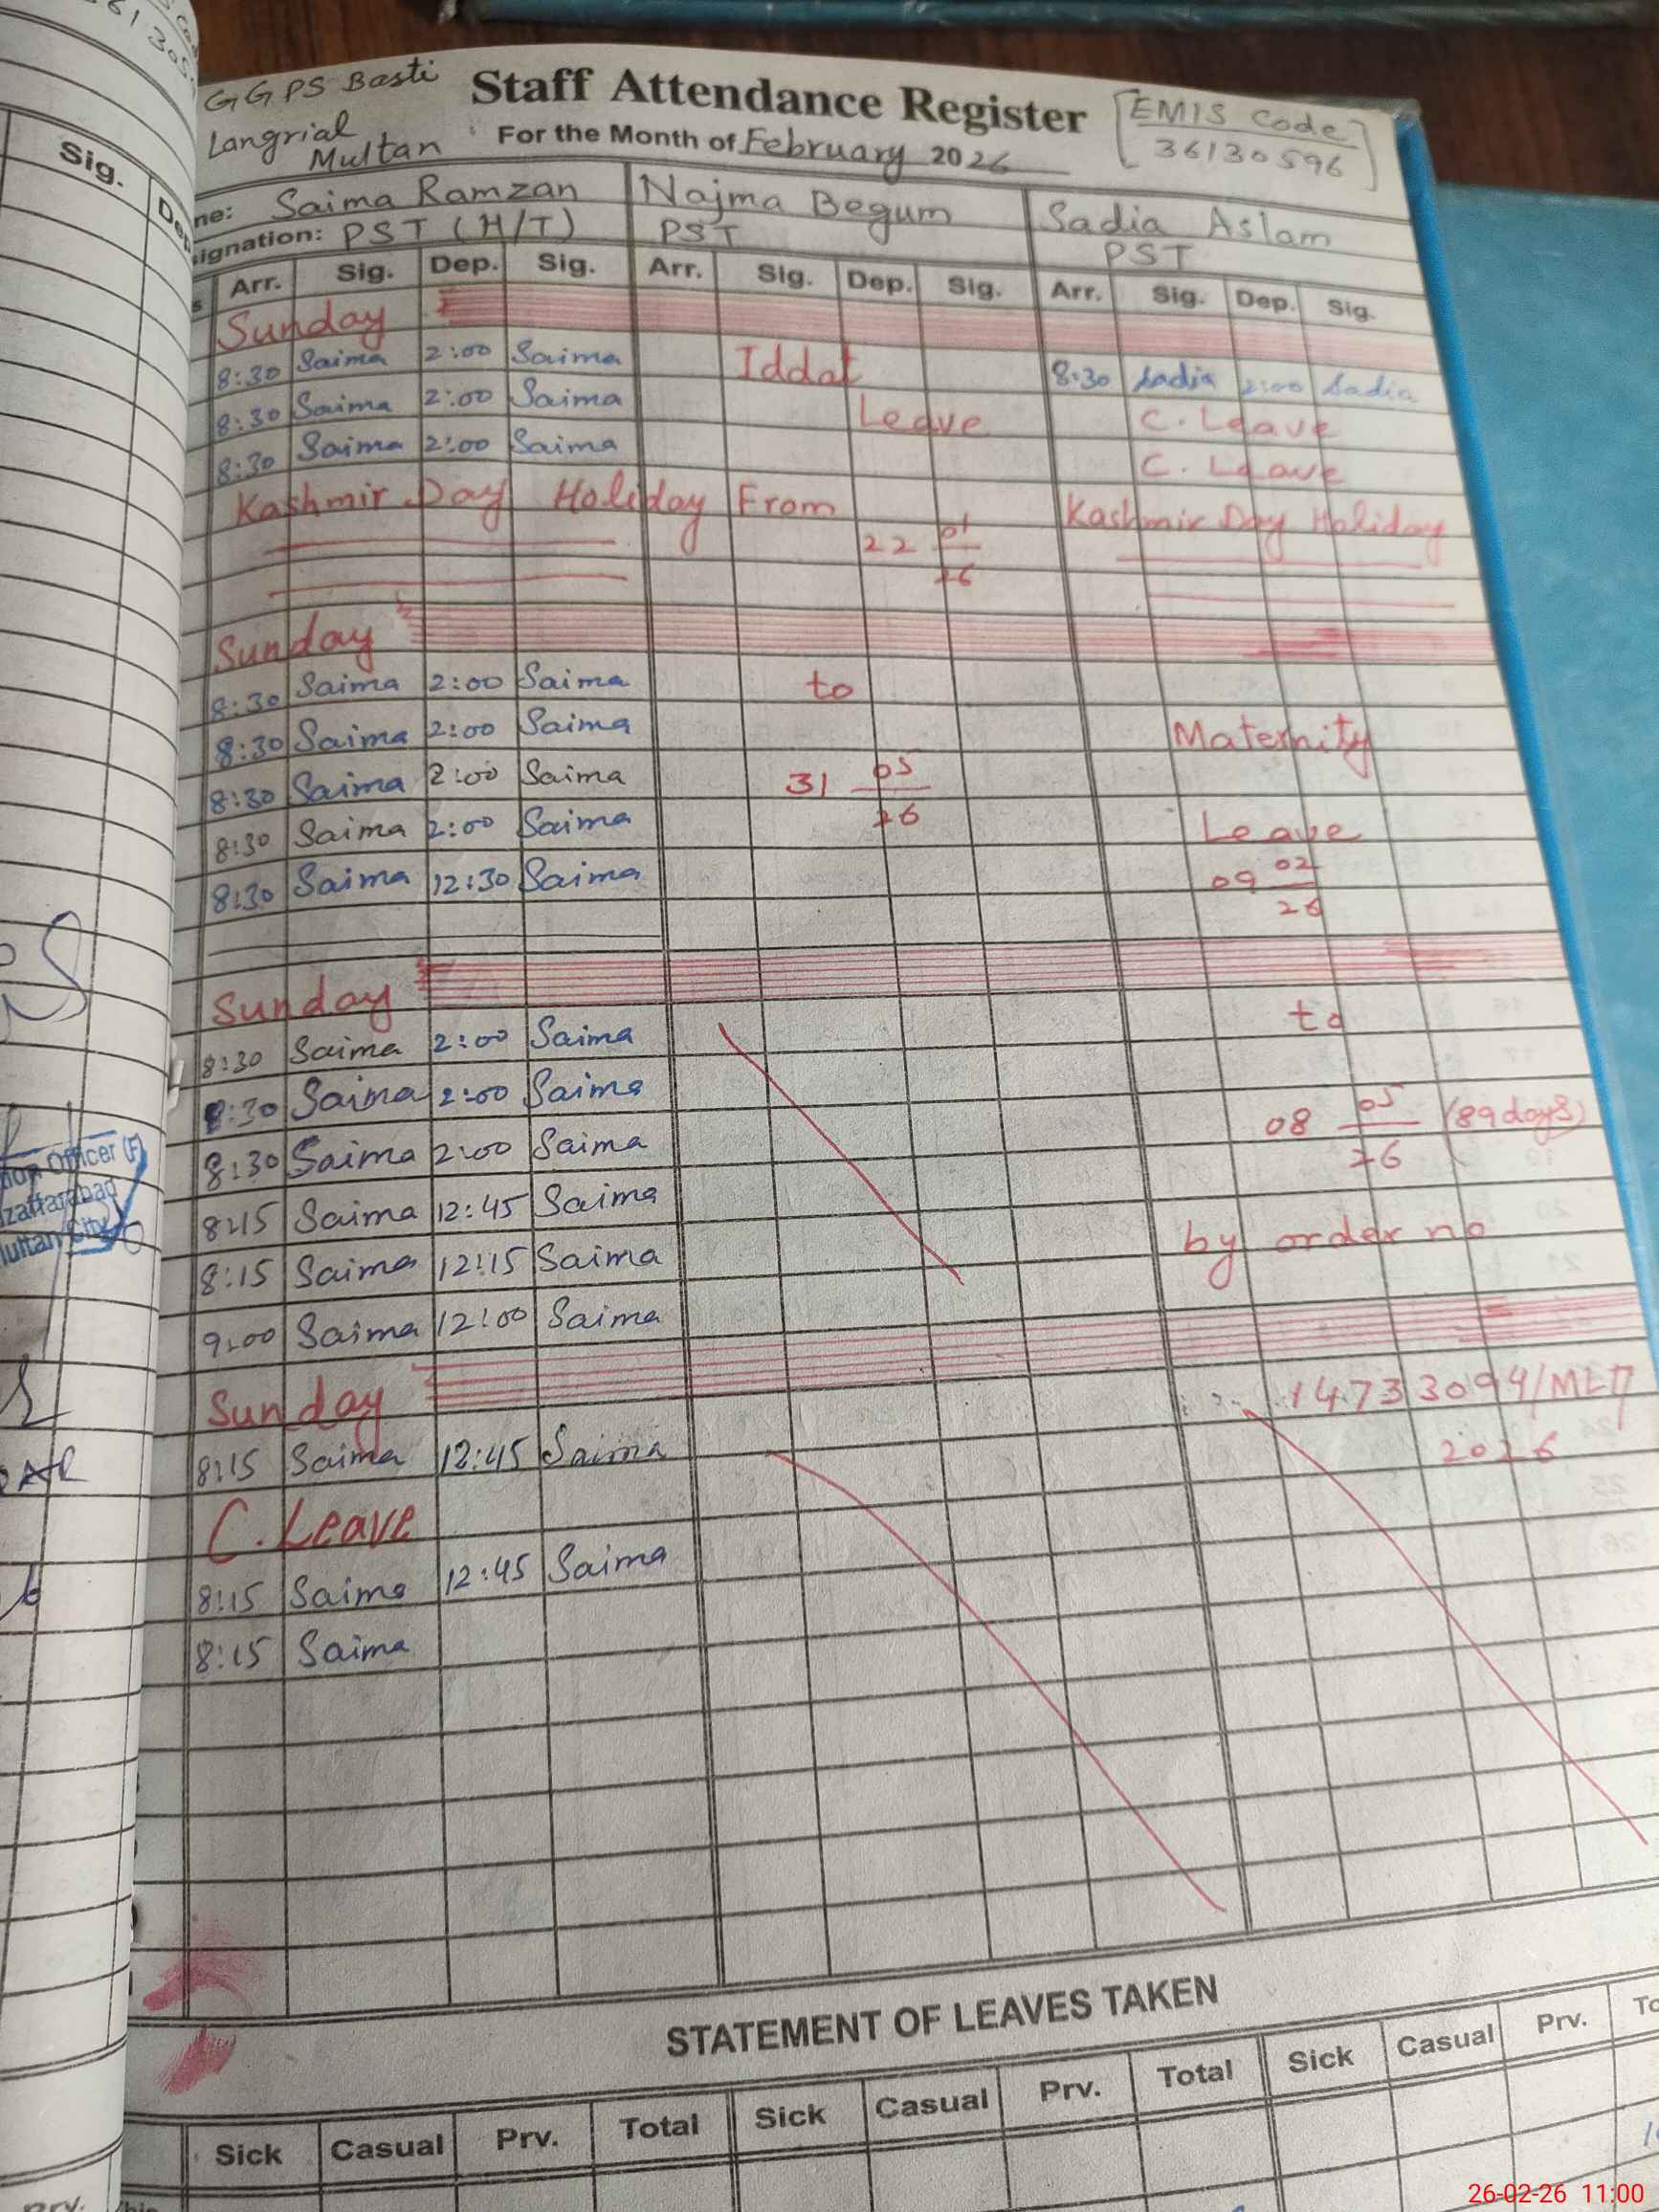 GGPS Basti
Langrial
Multan
Staff Attendance Register
For the Month of February 2026
EMIS Code
36130596
ne: Saima Ramzan Najma Begum Sadia Aslam
signation: PST (H/T) PST PST
Arr. Sig. Dep. Sig. Arr. Sig. Dep. Sig. Arr. Sig. Dep. Sig.
Sunday
8:30 Saima 2:00 Saima Iddat 8:30 Sadia 2:00 Sadia
8:30 Saima 2:00 Saima Leave C. Leave
8:30 Saima 2:00 Saima C. Leave
Kashmir Day Holiday From Kashmir Day Holiday
22 01
26
Sunday
8:30 Saima 2:00 Saima to
8:30 Saima 2:00 Saima Maternity
8:30 Saima 2:00 Saima 31 05
26
8:30 Saima 2:00 Saima Leave
8:30 Saima 12:30 Saima 09 02
26
Sunday
8:30 Saima 2:00 Saima to
8:30 Saima 2:00 Saima
8:30 Saima 2:00 Saima 08 05 (89 days)
26
8:15 Saima 12:45 Saima
8:15 Saima 12:15 Saima by order no
9:00 Saima 12:00 Saima
Sunday 14733094/
8:15 Saima 12:45 Saima 2026
C. Leave
8:15 Saima 12:45 Saima
8:15 Saima
STATEMENT OF LEAVES TAKEN
Sick Casual Prv. Total Sick Casual Prv. Total Sick Casual Prv. To
Sig.
Dep
Officer (F)
ultan City
Prv.
26-02-26 11:00